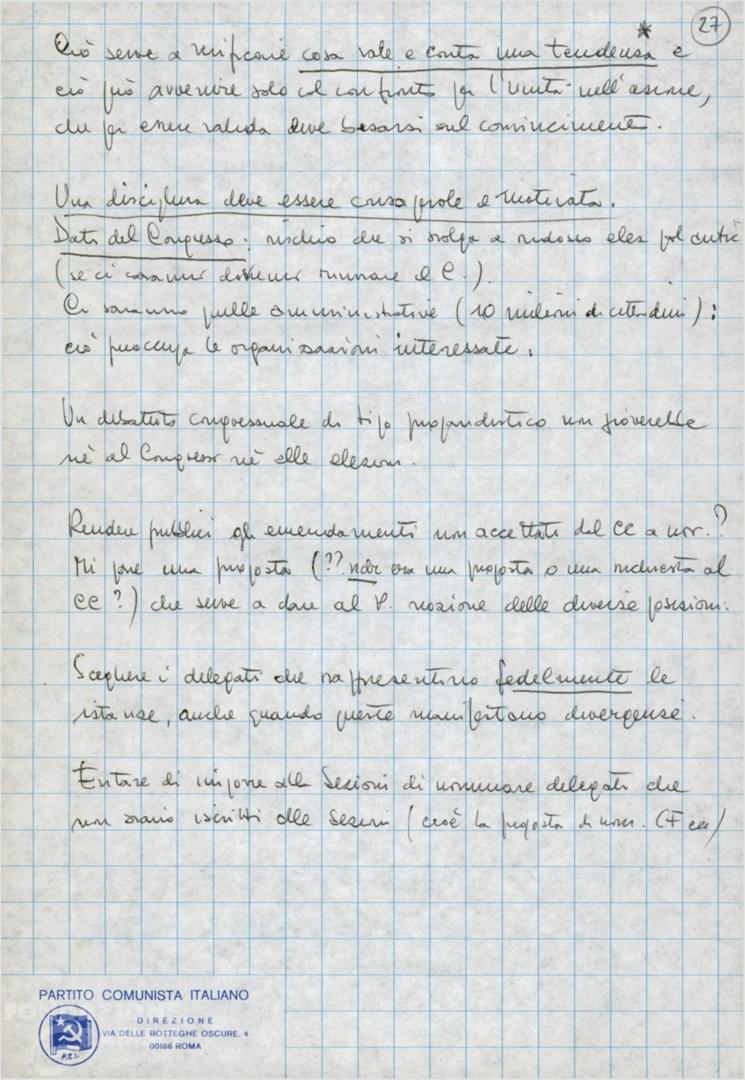 27
Ciò serve a verificare cosa vale e conta una tendenza * e
ciò può avvenire solo col confronto per l'unità nell'azione,
che per essere valida deve basarsi sul convincimento.
Una disciplina deve essere consapevole e motivata.
Data del Congresso: rischio che si svolga a ridosso elez. politiche
(se ci saranno dovremo rinviare il C.).
Ci saranno quelle amministrative (10 milioni di cittadini):
ciò preoccupa le organizzazioni interessate.
Un dibattito congressuale di tipo propandistico non gioverebbe
nè al Congresso nè alle elezioni.
Rendere pubblici gli emendamenti non accettati dal CC a nov.?
Mi pare una proposta (?? ndr era una proposta o una richiesta al
CC?) che serve a dare al P. nozione delle diverse posizioni.
Scegliere i delegati che rappresentino fedelmente le
istanze, anche quando queste manifestano divergenze.
Evitare di imporre alle Sezioni di nominare delegati che
non siano iscritti alle Sezioni (cioè la proposta di nom. CF
PARTITO COMUNISTA ITALIANO
DIREZIONE
VIA DELLE BOTTEGHE OSCURE, 4
00186 ROMA
P.C.I.